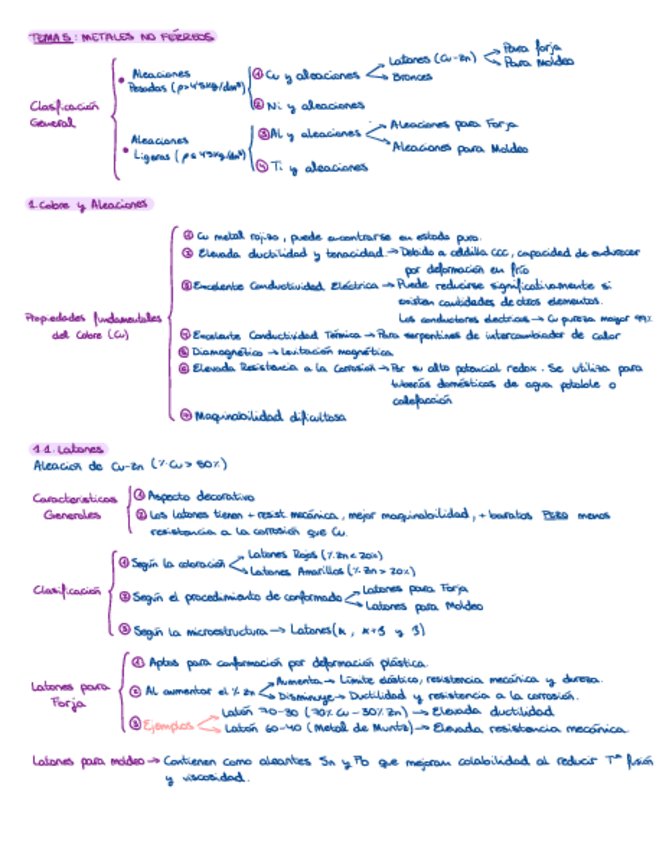 TEMA 5: METALES NO FÉRREOS
Clasificación General
• Aleaciones Pesadas (ρ>4'5kg/dm³)
① Cu y aleaciones
Latones (Cu-Zn)
Para forja
Para Moldeo
Bronces
② Ni y aleaciones
• Aleaciones Ligeras (ρ≤4'5kg/dm³)
③ Al y aleaciones
Aleaciones para Forja
Aleaciones para Moldeo
④ Ti y aleaciones
1. Cobre y Aleaciones
Propiedades fundamentales del Cobre (Cu)
① Cu metal rojizo, puede encontrarse en estado puro.
② Elevada ductilidad y tenacidad → Debido a celdilla CCC, capacidad de endurecer
por deformación en frío
③ Excelente Conductividad Eléctrica → Puede reducirse significativamente si
existen cantidades de otros elementos.
Los conductores eléctricos → Cu pureza mayor 99%
④ Excelente Conductividad Térmica → Para serpentines de intercambiador de calor
⑤ Diamagnético → Levitación magnética
⑥ Elevada Resistencia a la Corrosión → Por su alto potencial redox. Se utiliza para
tuberías domésticas de agua potable o
calefacción
⑦ Maquinabilidad dificultosa
1.1. Latones
Aleación de Cu-Zn (%Cu > 50%)
Características Generales
① Aspecto decorativo
② Los latones tienen + resist mecánica, mejor maquinabilidad, + baratos PERO menos
resistencia a la corrosión que Cu.
Clasificación
① Según la coloración
Latones Rojos (%Zn < 20%)
Latones Amarillos (% Zn > 20%)
② Según el procedimiento de conformado
Latones para Forja
Latones para Moldeo
③ Según la microestructura → Latones (
Latones para Forja
① Aptos para conformación por deformación plástica.
② Al aumentar el % Zn
Aumenta → Límite elástico, resistencia mecánica y dureza.
Disminuye → Ductilidad y resistencia a la corrosión.
③ Ejemplos
Latón 70-30 (70% Cu - 30% Zn) → Elevada ductilidad
Latón 60-40 (Metal de Muntz) → Elevada resistencia mecánica
Latones para moldeo → Contienen como aleantes Sn y Pb que mejoran colabilidad al reducir Tª fusión
y viscosidad.